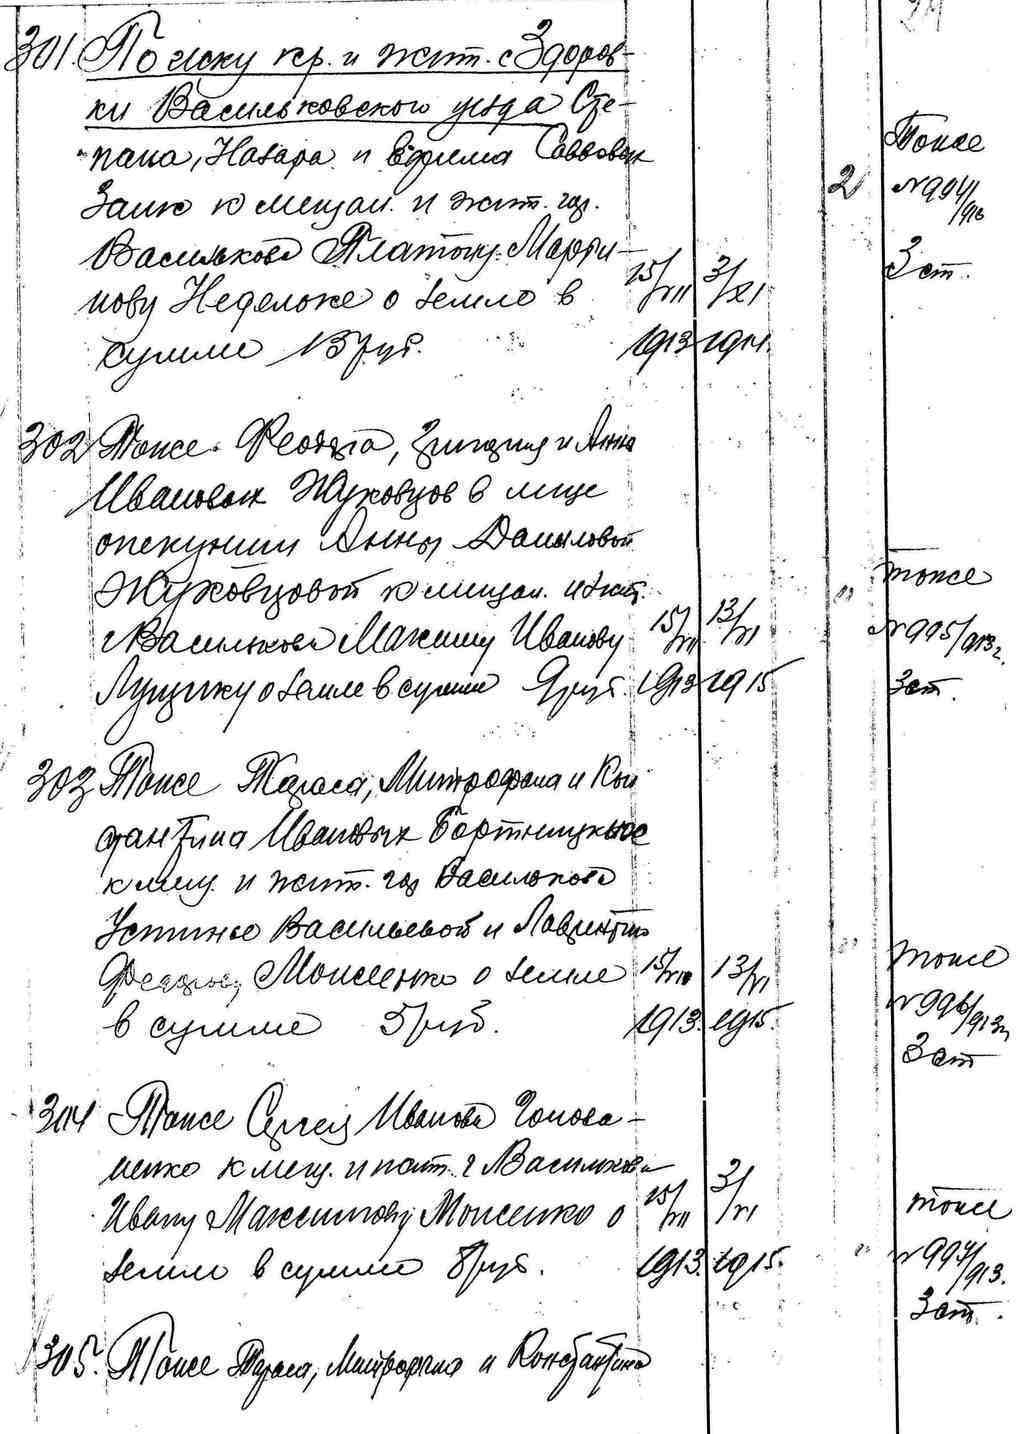 24
301. По иску кр. и жит. с Здоров-
ки Васильковского уезда Сте-
пана, Назара и Ефима Саввовых
Заик к мещан. и жит. гор.
Василькова Платону Марти-
нову Неделоке о земле в
сумме 15 руб.
15/VII 3/XI
1913 1914.
2
Тоже
№ 994/913
3 ст.
302 Тоже Феодора, Григория и Анны
Ивановых Жуковцов в лице
опекунши Анны Даниловой
Жуковцовой к мещан. и жит.
г Василькова Максиму Иванову
Луценку о земле в сумме 9 руб.
15/VII 13/VI
1913 1915
"
тоже
№ 995/913 г.
3 ст.
303 Тоже Тараса, Митрофана и Кон
стантина Ивановых Бортницких
к мещ. и жит. гор Василькова
Устинье Васильевой и Лаврентию
Моисеенко о земле
в сумме 5 руб.
15/VII 13/VI
1913. 1915.
"
тоже
№ 996/913 г
3 ст
304 Тоже Сергея Иванова
ненко к мещ. и жит. г Василькова
Ивану Максимову Моисеенко о
земле в сумме 8 руб.
15/VII 3/VI
1913. 1915.
"
тоже
№ 997/913.
3 ст.
305. Тоже Тараса, Митрофана и Константина